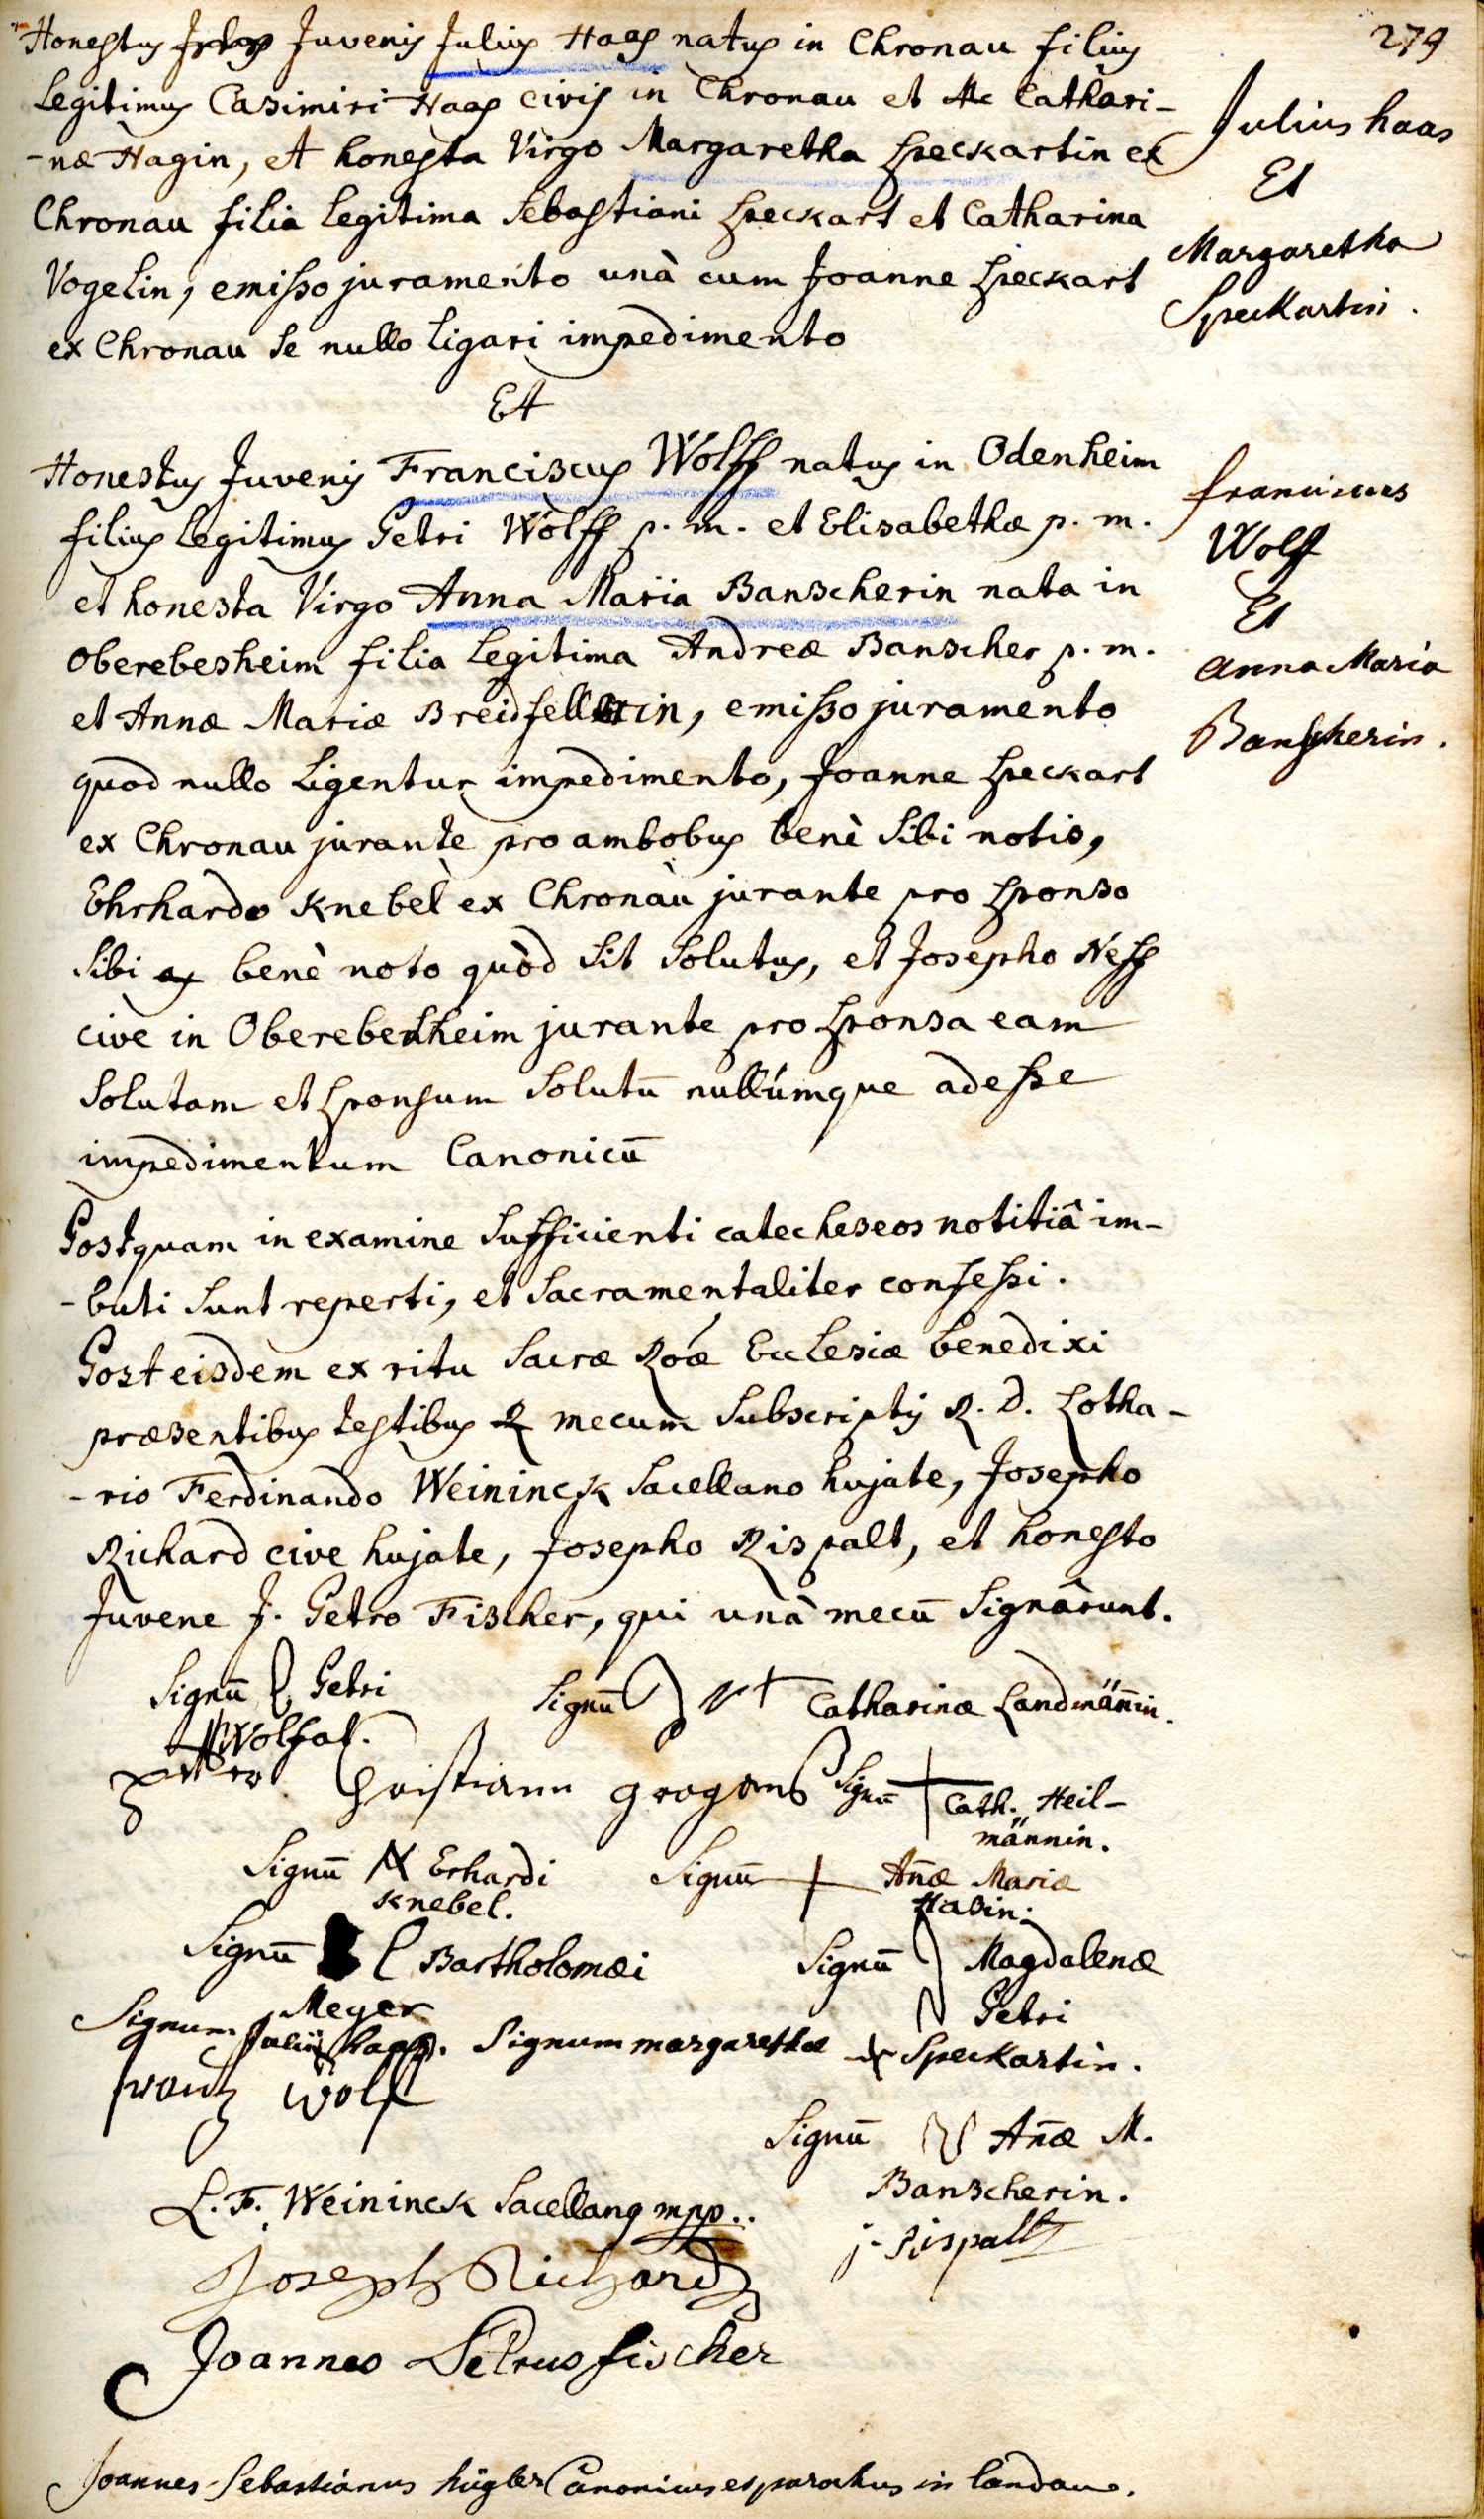 279
Honestus Juvenis Julius Haas natus in Chronau filius
Legitimus Casimiri Haas civis in Chronau et Cathari-
-næ Hagin, et honesta Virgo Margaretha Speckartin ex
Chronau filia legitima Sebastiani Speckart et Catharina
Vogelin, emisso juramento unà cum Joanne Speckart
ex Chronau se nullo ligari impedimento
Julius haas
Et
Margaretha
Speckartin.
Et
Honestus Juvenis Franciscus Wolff natus in Odenheim
filius legitimus Petri Wolff p. m. et Elisabethæ p. m.
et honesta Virgo Anna Maria Banscherin nata in
Oberebesheim filia legitima Andreæ Banscher p. m.
et Annæ Mariæ, emisso juramento
quod nullo ligentur impedimento, Joanne Speckart
ex Chronau jurante pro ambobus benè sibi notis,
Ehrhardo Knebel ex Chronau jurante pro sponso
sibi benè noto quòd sit solutus, et Josepho Ness
cive in Oberebesheim jurante pro sponsa eam
solutam et sponsum solutū nullúmque adesse
impedimentum Canonicū
franciscus
Wolf
Et
Anna Maria
Banscherin.
Postquam in examine sufficienti catecheseos notitiâ im-
-buti sunt reperti, et sacramentaliter confessi.
Post eisdem ex ritu sacræ Roáe Ecclesiæ benedixi
præsentibus testibus mecum subscriptis R. D. Lotha-
-rio Ferdinando Weininck sacellano hujate, Josepho
Richard cive hujate, Josepho Rispalt, et honesto
Juvene J. Petro Fischer, qui unà mecū signârunt.
Signū Petri
Wolfat.
Signū Catharinæ Landmäñin.
Signū Cath. Heil-
männin.
Signū Erhardi
Knebel.
Signū Añæ Mariæ
Hasin.
Signū Bartholomæi
Meyer
Signū Magdalenæ
Petri
Signum Julii haas. Signum margarethæ Speckartin.
frantz wolf
Signū Añæ M.
Banscherin.
L. F. Weininck sacellanus mpp..
j. Rispalt
Joseph Richard
Joannes Petrus fischer
Joannes Sebastianus hügler Canonicus et parochus in landau.